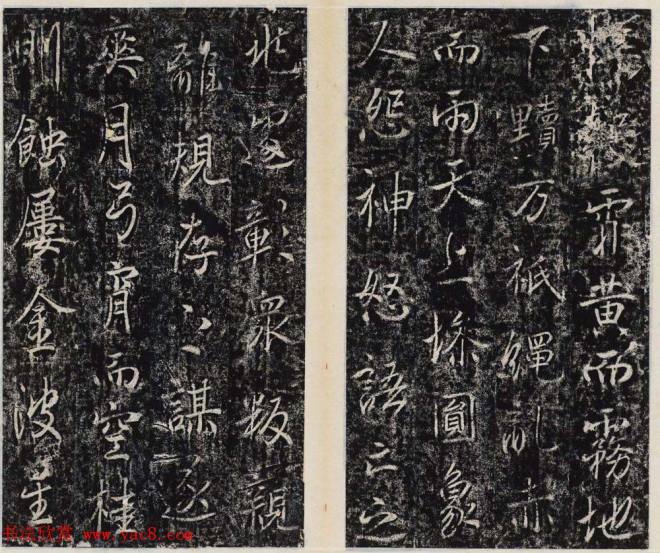 霏黃而霧地
下黷方祇繩亂赤
而雨天上墋圓象
人怨神怒語亡之
兆逾彰衆叛親
離規存之謀遂
爽月弓宵而空桂
則蝕屢金波星
书法欣赏 www.yac8.com